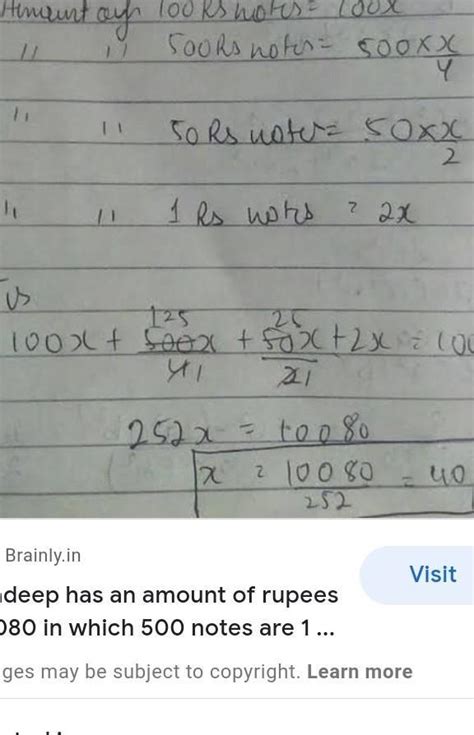 Amount of 100 Rs notes = 100x
" " 500 Rs notes = 500 × x/4
" " 50 Rs notes = 50 × x/2
" " 1 Rs notes = 2x
100x + 125 500x/41 + 25 50x/21 + 2x = 100
252x = 10080
x = 10080/252 = 40
Brainly.in
Visit
deep has an amount of rupees
080 in which 500 notes are 1 ...
ges may be subject to copyright. Learn more